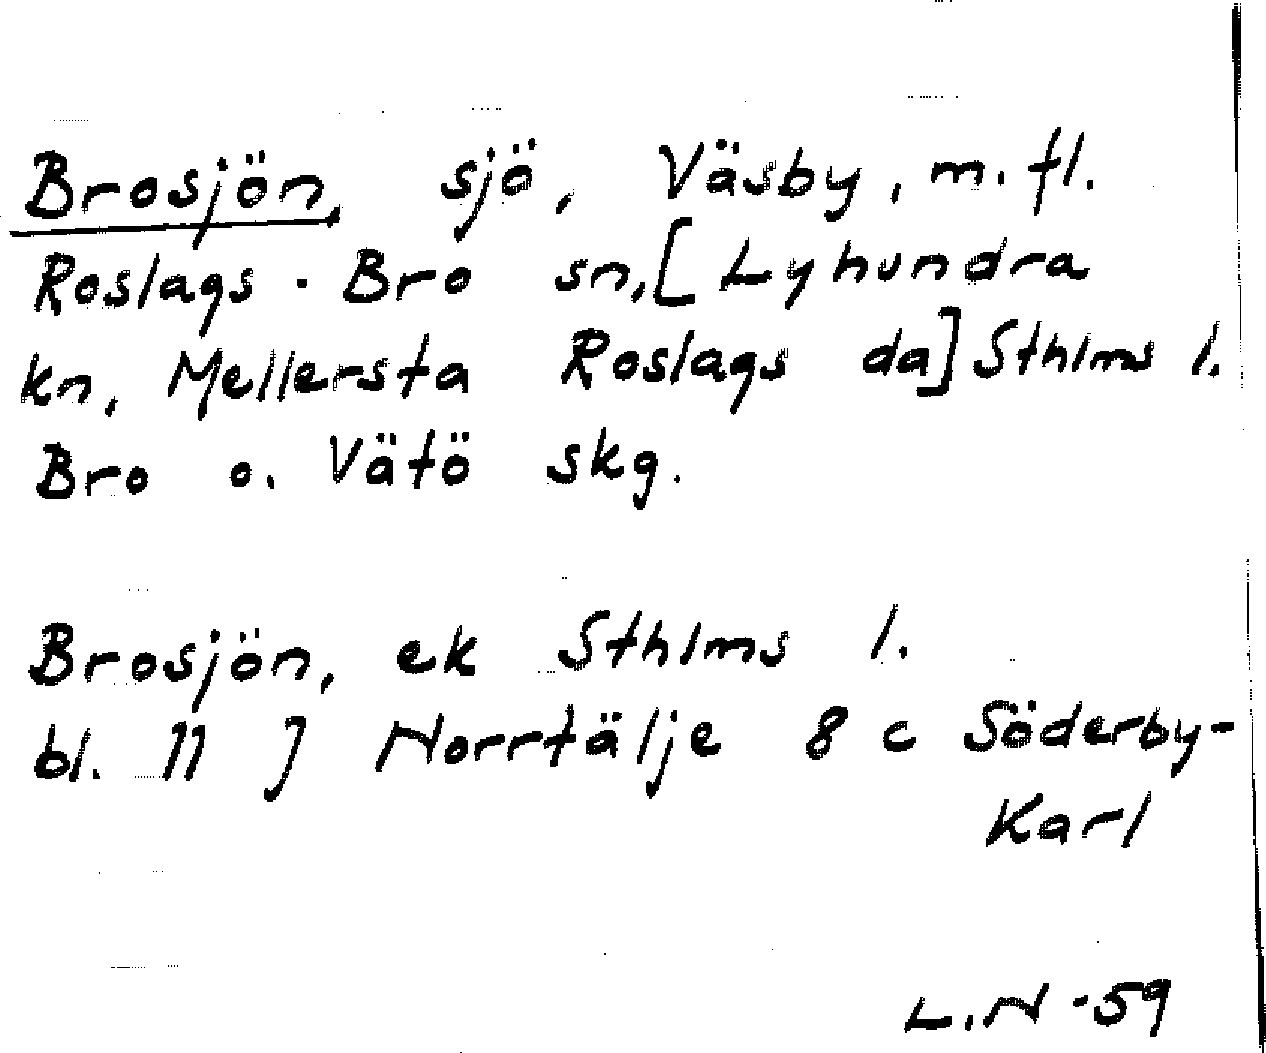 Brosjön, sjö, Väsby, m. fl.
Roslags-Bro sn, [Lyhundra
kn, Mellersta Roslags da] Sthlms l.
Bro o. Vätö skg.
Brosjön, ek Sthlms l.
bl. 11 J Norrtälje 8 c Söderby-
Karl
L.N -59